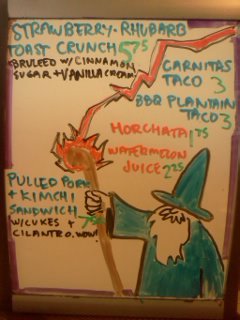 STRAWBERRY-RHUBARB
TOAST CRUNCH 575
BRULEED W/CINNAMON
SUGAR + VANILLA CREAM!
CARNITAS
TACO 3
BBQ PLANTAIN
TACO 3
HORCHATA 175
WATERMELON
JUICE 225
PULLED PORK
+ KIMCHI
SANDWICH
W/CUKES + 750
CILANTRO.WOW!